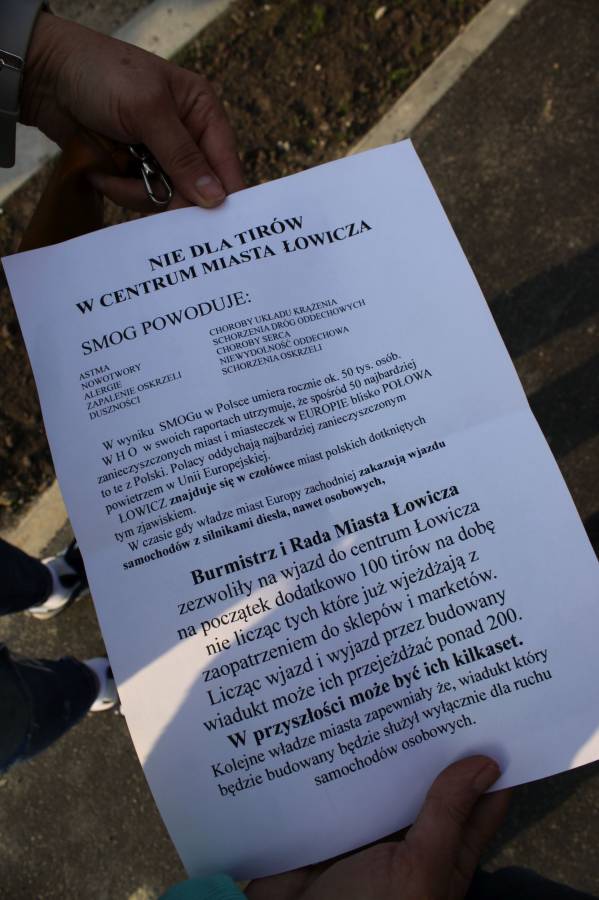 NIE DLA TIRÓW
W CENTRUM MIASTA ŁOWICZA
SMOG POWODUJE:
ASTMA
NOWOTWORY
ALERGIE
ZAPALENIE OSKRZELI
DUSZNOŚCI
CHOROBY UKŁADU KRĄŻENIA
SCHORZENIA DRÓG ODDECHOWYCH
CHOROBY SERCA
NIEWYDOLNOŚĆ ODDECHOWA
SCHORZENIA OSKRZELI
W wyniku SMOGu w Polsce umiera rocznie ok. 50 tys. osób.
W H O w swoich raportach utrzymuje, że spośród 50 najbardziej
zanieczyszczonych miast i miasteczek w EUROPIE blisko POŁOWA
to te z Polski. Polacy oddychają najbardziej zanieczyszczonym
powietrzem w Unii Europejskiej.
ŁOWICZ znajduje się w czołówce miast polskich dotkniętych
tym zjawiskiem.
W czasie gdy władze miast Europy zachodniej zakazują wjazdu
samochodów z silnikami diesla, nawet osobowych,
Burmistrz i Rada Miasta Łowicza
zezwoliły na wjazd do centrum Łowicza
na początek dodatkowo 100 tirów na dobę
nie licząc tych które już wjeżdżają z
zaopatrzeniem do sklepów i marketów.
Licząc wjazd i wyjazd przez budowany
wiadukt może ich przejeżdżać ponad 200.
W przyszłości może być ich kilkaset.
Kolejne władze miasta zapewniały że, wiadukt który
będzie budowany będzie służył wyłącznie dla ruchu
samochodów osobowych.